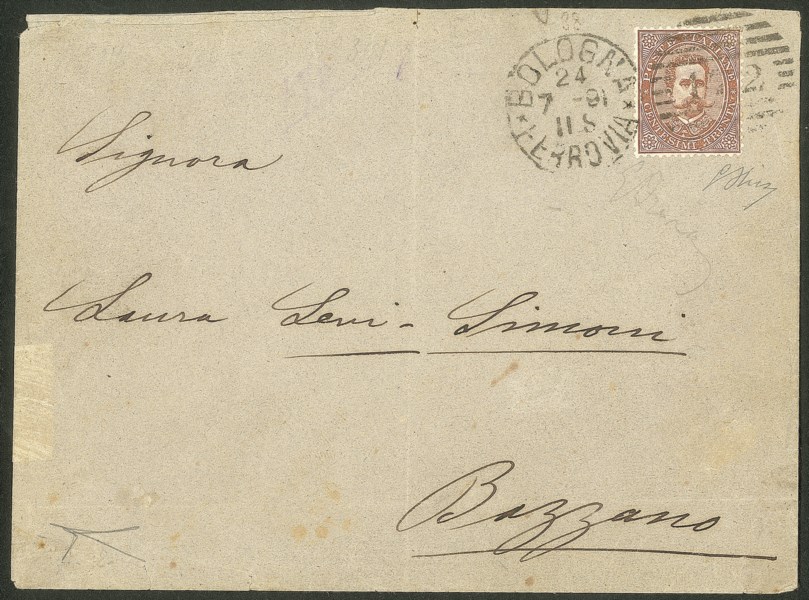 BOLOGNA
24
7 - 91
11 S
* FERROVIA *
POSTE ITALIANE
CENTESIMI TRENTA
2
Signora
Laura Levi - Simoni
Bazzano